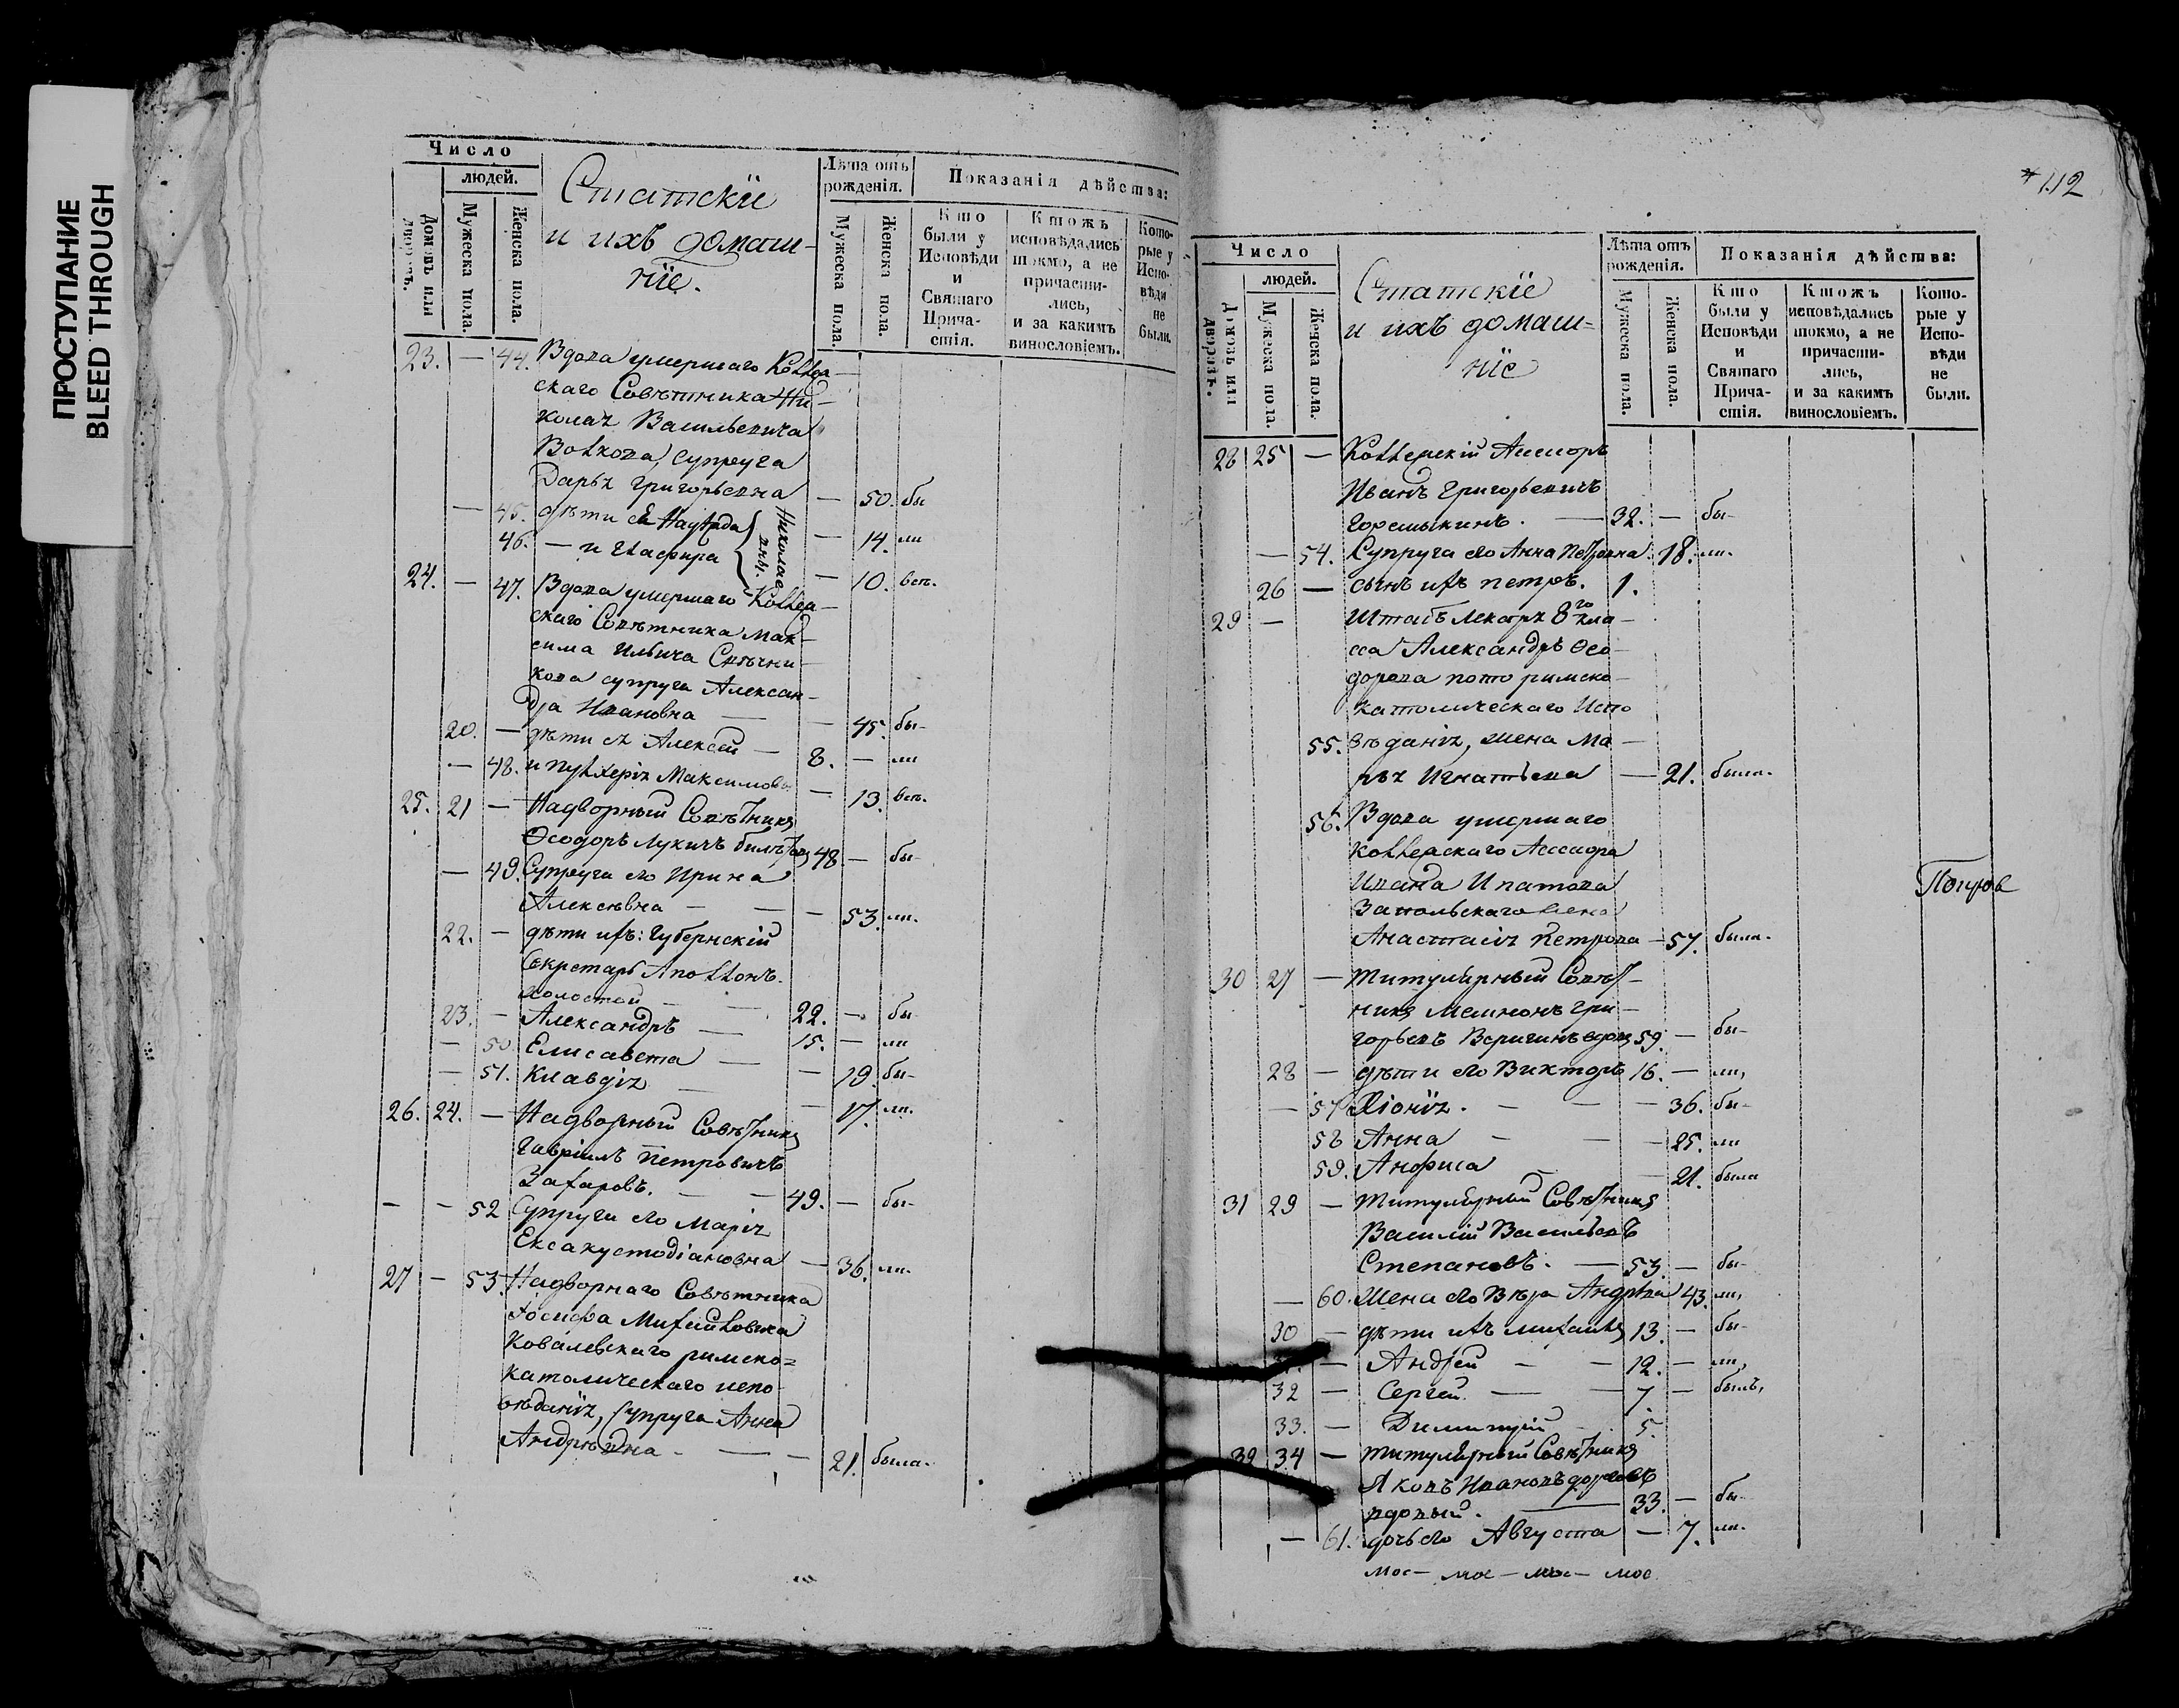 ПРОСТУПАНИЕ
BLEED THROUGH
Число
людей.
Домовъ или дворовъ.
Мужеска пола.
Женска пола.
Статскїе
и ихъ домаш-
нїе.
Лѣта отъ
рожденія.
Мужеска пола.
Женска пола.
Показанія дѣйства:
Кто
были у
Исповѣди
и
Святаго
Прича-
стія.
Ктожъ
исповѣдались
токмо, а не
причасти-
лись,
и за какимъ
винословіемъ.
Кото-
рые у
Испо-
вѣди
не
были.
23. — 44. Вдова умершаго Коллеж-
скаго Совѣтника Ни-
колая Васильевича
Волкова, супруга
Дарья Григорьевна — 50. бы
— 45. дѣти ея Надежда — 14. ли
46. — и Глафира — 10. всѣ.
Николаевны.
24. — 47. Вдова умершаго Коллеж-
скаго Совѣтника Мак-
сима Ильича Свѣчни-
кова супруга Алексан-
дра Ивановна — — 45. бы-
20. — дѣти ея Алексѣй — 8. — ли
— 48. и Пульхерія Максимовы — 13. всѣ.
25. 21 — Надворный Совѣтникъ
Ѳеодоръ Лукичъ 48 — бы-
— 49. Супруга его Ирина
Алексѣвна — — — 53. ли.
22. — дѣти ихъ: Губернскій
Секретарь Аполлонъ.
холостой — — 22. — бы-
23. — Александръ — 15. — ли
— 50 Елисавета — — 19. бы-
— 51. Клавдія — — 17. ли.
26. 24. — Надворный Совѣтникъ
Гавріилъ Петровичъ
Захаровъ. — — 49. — бы-
— — 52 Супруга его Марія
Ексакустодіановна — 36. ли.
27 — 53. Надворнаго Совѣтника
Іосифа Михайловича
Ковалевскаго римско=
католическаго испо-
вѣданія, супруга Анна
Андрѣевна — — — 21. была.
*112
Число
людей.
Домовъ или дворовъ.
Мужеска пола.
Женска пола.
Статскїе
и ихъ домаш=
нїе
Лѣта отъ
рожденія.
Мужеска пола.
Женска пола.
Показанія дѣйства:
Кто
были у
Исповѣди
и
Святаго
Прича-
стія.
Ктожъ
исповѣдались
токмо, а не
причасти-
лись,
и за какимъ
винословіемъ.
Кото-
рые у
Испо-
вѣди
не
были.
28 25 — Коллежскій Ассесоръ
Иванъ Григорьевичъ
Горемыкинъ. — 32. — бы-
— 54. Супруга его Анна Петровна. 18. ли.
26 — сынъ ихъ Петръ. 1.
29 — Штабъ Лекаря 8го кла-
сса Александръ Ѳео-
дорова римско-
католическаго Испо
55. вѣданія, жена Ма-
рья Игнатьева — 21. была.
56. Вдова умершаго
Коллежскаго Ассесора
Ивана Ипатова
Запольскаго жена
Анастасія Петрова — 57. была.
30 27 — Титулярный Совѣт-
никъ Мемнонъ Гри-
горьевъ Веригинъ вдовъ 59. — бы-
28 — дѣти его Викторъ 16. — ли,
— 57 Хіонія. — — — 36. бы-
58 Анна — — — 25. ли
59. Анфиса — 21. была
31 29 — Титулярный Совѣтникъ
Василій Васильевъ
Степановъ. — 53. — бы-
— 60. Жена его Вѣра Андрѣева 43. ли,
30 — дѣти ихъ Михаилъ 13. — бы-
— Андрей — — 12. — ли,
32 — Сергей. — — 7 — былъ,
33. — Димитрій — 5.
32 34 — Титулярный Совѣтникъ
Яковъ Ивановъ
вдовый. — 33. — бы-
— 61. дочь его Августа — 7. ли.